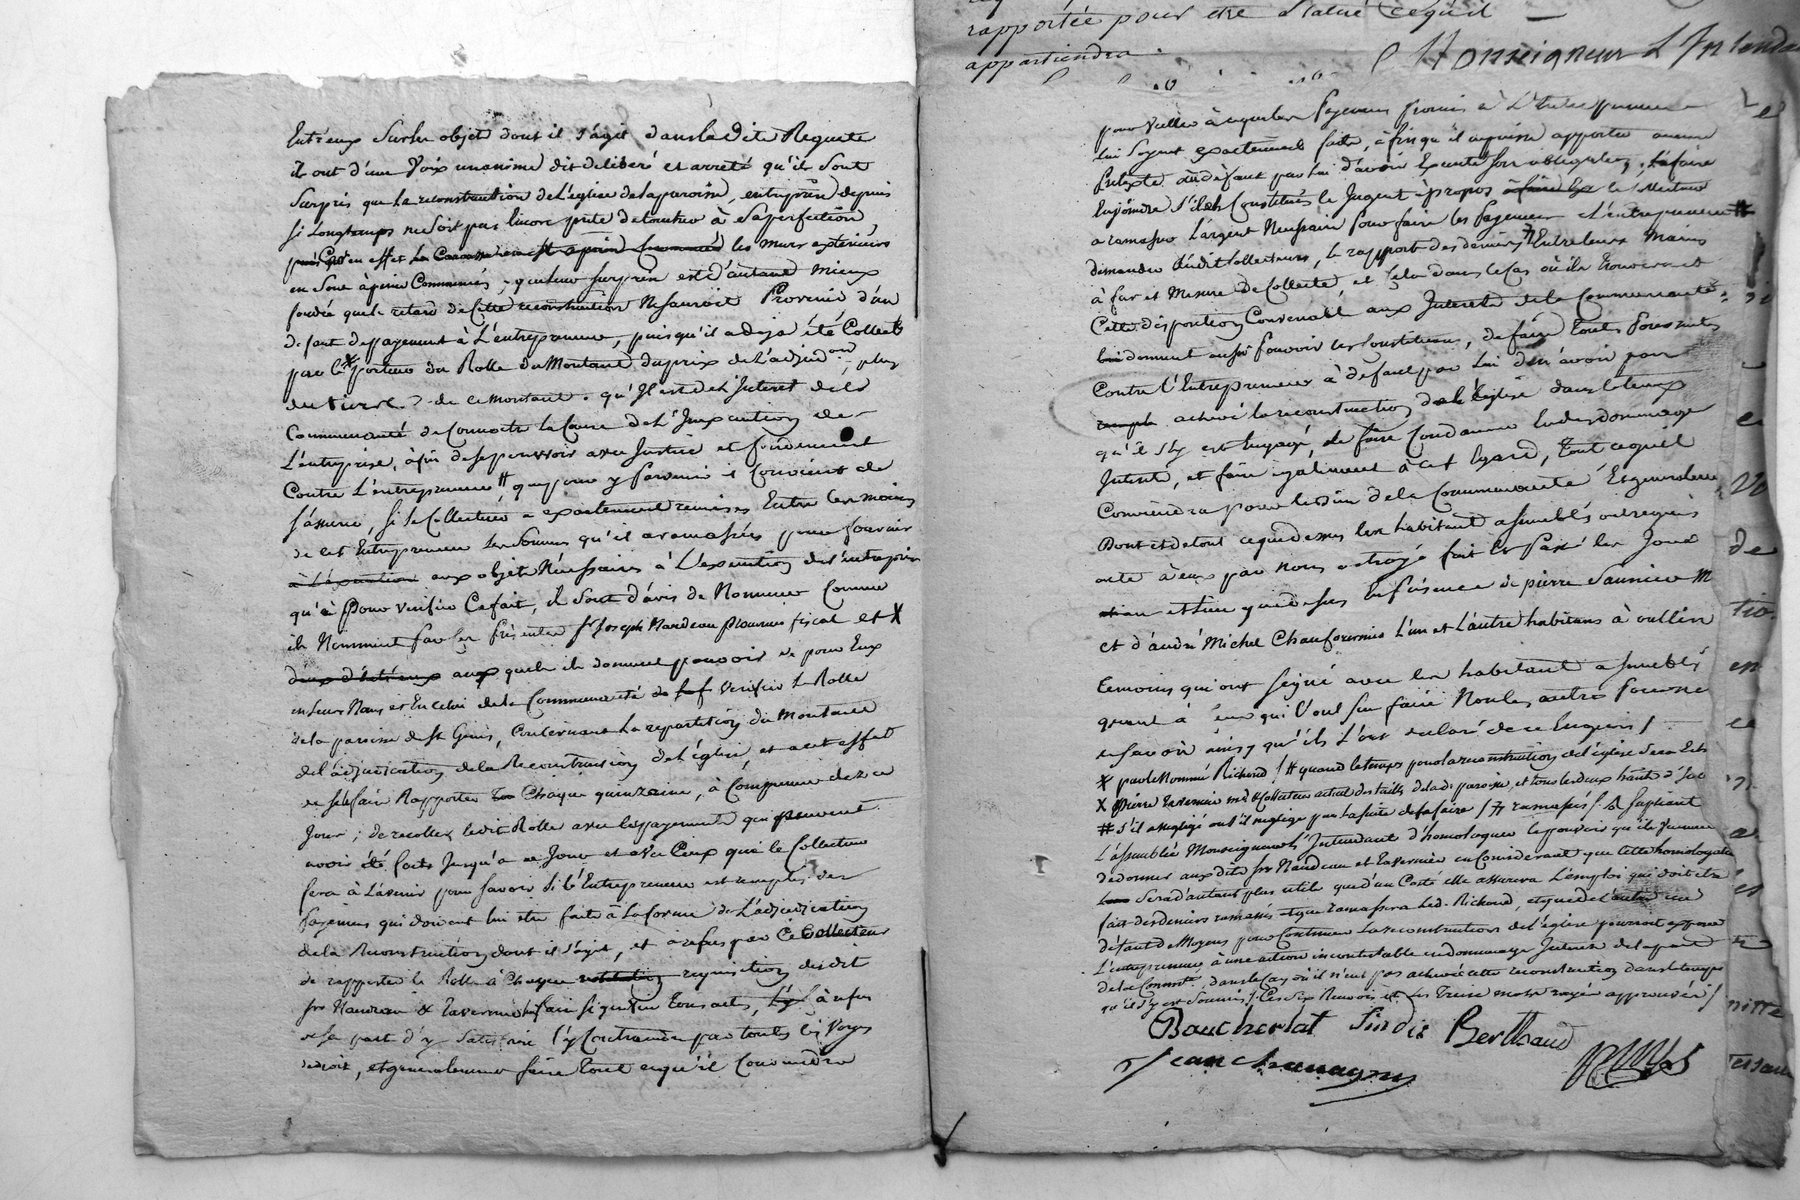 Entr'eux Surles objets dont il s'agit dans la Dite Requete
ils ont d'une Voix unanime dit deliberé et arreté qu'ils sont
Surpris que la reconstruction de L'église de la paroisse, entreprise depuis
si Longtemps ne Soit pas Encore prete de toucher à Saperfection
en effet les murs extérieurs
en Sont àpeine Commencés, que leur surprise est d'autant Mieux
fondée que le retard de Cette reconstruction Ne Sauroit Provenir d'un
defaut depayement à L'entrepreneur, puisqu'il a deja été Collecté
par le * porteur du Rolle du Montant du prix de L'adjudon plus
du tiers de ce montant. qu'Il est de L'Interet de la
Communauté de Connoitre la Cause de L'Inexecution de
L'entreprise, àfin de se pourvoir avec Justice et fondement
Contre L'entrepreneur # que pour y parvenir il Convient de
s'assurer, si le Collecteur a exactement remises Entre les mains
de cet Entrepreneur les Sommes qu'il a ramassées pour fournir
à L'execution aux objets Nécessaires à L'execution de l'entreprise
qu'à Pour verifier Ce fait, ils Sont d'avis de Nommer Comme
ils Nomment par les présentes sr Joseph Nandeau Procureur fiscal et X
deux d'entr'eux auxquels ils donnent pouvoir de pour Eux
en Leurs Noms et En celui de la Communauté de verifier le Rolle
de la paroisse de St Genis, Contenant La repartition du Montant
de L'adjudication de la Reconstruction de L'église, et a cet effet
de se le faire Rapporter Chaque quinzaine, à Commencer de ce
Jour, de recoller ledit Rolle avec les payements qui peuvent
avoir été faits Jusqu'à ce Jour et avec Ceux que le Collecteur
fera à L'avenir pour savoir si l'Entrepreneur est rempli des
payemens qui doivent lui etre faits à la forme de L'adjudication
de la Reconstruction dont il s'agit, et à refus par Ce Collecteur
de rapporter le Rolle à Chaque requisition desdits
srs Nandeau & Tavernier lui faire signifier tous actes, à refus
de sa part d'y Satisfaire l'y Contraindre par toutes les Voyes
dedroit, et generalement faire Tout ce qu'il Conviendra
rapportée pour etre Statué Cequ'il
appartiendra.
Monseigneur L'Intendant
pour Veiller à ce que les Payemens promis à L'Entrepreneur
lui Soyent exactement faits, à fin qu'il ne puisse apporter aucun
Pretexte au defaut par lui d'avoir Executé Ses obligations, à faire
Enjoindre s'ils les Constitués le Jugent àpropos le Collecteur
a ramasser L'argent Necessaire Pour faire les Payemens à L'entrepreneur #
demander audit Collecteur, le rapport des deniers Entre leurs Mains
à fur et Mesure de Collecte, et Cela dans le Cas où ils trouveront
Cette disposition Convenable aux Interets de la Communauté,
lui donnent aussi Pouvoir les Constituans, de faire Toutes Poursuites
Contre l'Entrepreneur à defaut par lui d'en avoir par
achevé la reconstruction de L'église dans le temps
qu'il s'y est Engagé, de faire Condamner Ende dommages
Interets, et faire egalement à Cet Egard, Tout ce qu'il
Conviendra pour le bien de la Communauté Et generalement
Dont et de tout ce que dessus les habitans assemblés ont requis
acte à eux par nous octroyé fait Et Passé les Jour
an et Lieu que dessus En présence de pierre Saunier M
et d'andré Michel Chaufournier L'un et L'autre habitans à oullins
Temoins qui ont signé avec les habitans assemblés
quant à Ceux qui l'ont sçu faire Non les autres Pour ne
le Savoir ainsy qu'ils L'ont declaré de ce Enquis /.
* par le Nommé Richond / # quand le temps pour la reconstruction de l'église Sera Echu
X Pierre Tavernier me & Collecteur actuel des tailles de lad. paroisse, et tous les deux habitans d'Icelle
# s'il a negligé ou s'il neglige par la suite de le faire / ramassés / & suppliant
L'assemblée Monseigneur L'Intendant d'homologuer le pouvoir qu'ils Viennent
de donner auxdits srs Nandeau et Tavernier en Considerant que Cette homologation
Sera d'autant plus utile que d'un Coté elle assurera L'emploi qui doit etre
fait des deniers ramassés et que ramassera Led. Richond, et que de L'autre un
défaut de Moyens pour Continuer La reconstruction de l'église pourroit exposer
L'entrepreneur, à une action incontestable en dommages Interets de la part
de la Commté. dans le Cas où il n'eut pas achevé cette reconstruction dans le temps
qu'il s'y est Soumis / Ces Six Renvois et les Treize mots rayés approuvés /
Boucherlat Sindic Berthaud
Jean Chanagny